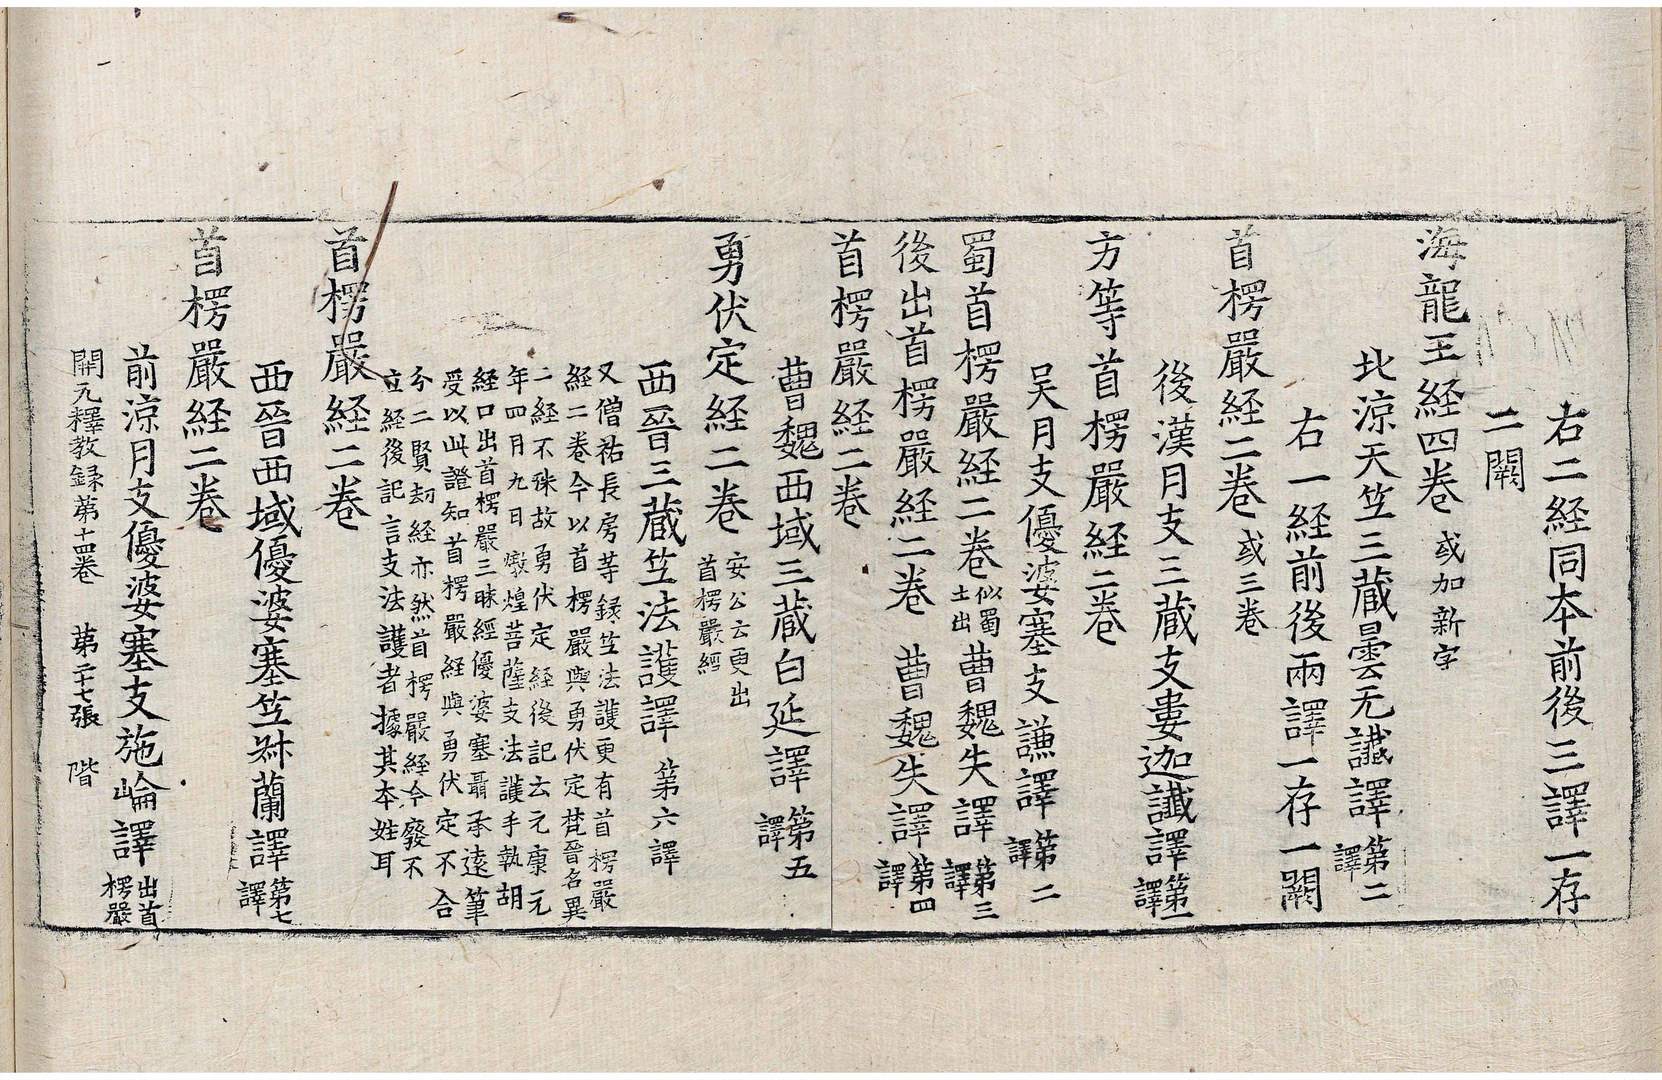 右二経同本前後三譯一存
二闕
海龍王経四卷 或加新字
北涼天竺三藏曇无讖譯 第二譯
右一経前後兩譯一存一闕
首楞嚴経二卷 或三卷
後漢月支三藏支婁迦讖譯 第一譯
方等首楞嚴経二卷
吴月支優婆塞支謙譯 第二譯
蜀首楞嚴経二卷 似蜀土出 曹魏失譯 第三譯
後出首楞嚴経二卷 曹魏失譯 第四譯
首楞嚴経二卷
曹魏西域三藏白延譯 第五譯
勇伏定経二卷 安公云更出首楞嚴經
西晉三藏竺法護譯 第六譯
又僧祐長房䓁録竺法護更有首楞嚴
経二卷今以首楞嚴與勇伏定梵晉名異
二経不殊故勇伏定経後記云元康元
年四月九日燉煌菩薩支法護手執胡
経口出首楞嚴三昧經優婆塞聶承遠筆
受以此證知首楞嚴経與勇伏定不合
分二賢劫経亦然首楞嚴経今廢不
立経後記言支法護者據其本姓耳
首楞嚴経二卷
西晉西域優婆塞竺叔蘭譯 第七譯
首楞嚴経二卷
前涼月支優婆塞支施崘譯 出首楞嚴
開元釋教録苐十四卷 第二十七張 階